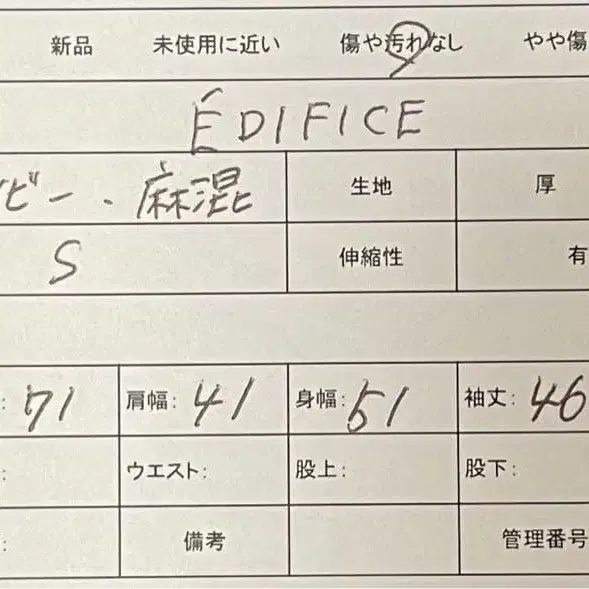 新品 未使用に近い 傷や汚れなし やや傷
ÉDIFICE
ビー・麻混 生地 厚
S 伸縮性 有
: 71 肩幅: 41 身幅: 51 袖丈: 46
: ウエスト: 股上: 股下:
: 備考 管理番号